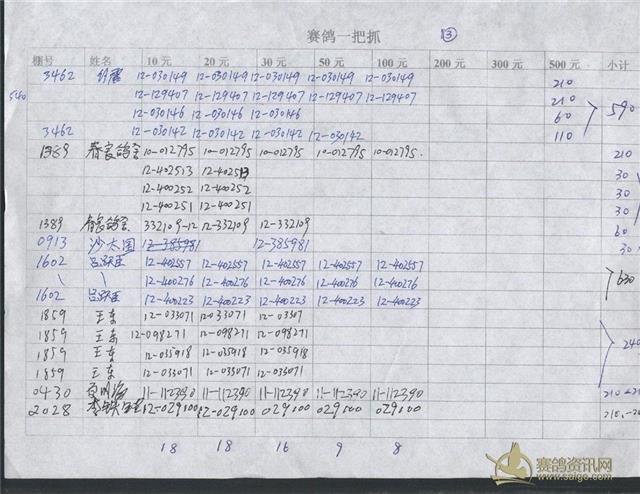 赛鸽一把抓 ⑬
棚号 姓名 10元 20元 30元 50元 100元 200元 300元 500元 小计
3462 12-030149 12-030149 12-030149 12-030149 12-030149 210
540 12-129407 12-129407 12-129407 12-129407 12-129407 210 590
12-030146 12-030146 12-030146 60
3462 12-030142 12-030142 12-030142 12-030142 110
1389 10-012795 10-012795 10-012795 10-012795 10-012795 210
12-402513 12-402513 30
12-400252 12-400252 30
12-400251 12-400251 30
1389 332109-12 12-332109 12-332109 60
0913 沙太国 12-385981 12-385981 30
1602 吕跃臣 12-402557 12-402557 12-402557 12-402557 12-402557
\ \ 12-400276 12-400276 12-400276 12-400276 12-400276 630
1602 吕跃臣 12-400223 12-400223 12-400223 12-400223 12-400223
1859 王东 12-033071 12-033071 12-0307
1859 王东 12-098271 12-098271 12-098271
1859 王东 12-035918 12-035918 12-035918 240
1859 王东 12-033071 12-033071 12-033071
0430 11-112390 11-112390 11-112390 11-112390 11-112390 210
2028 12-029100 12-029100 029100 029100 029100 210
18 18 16 9 8
赛鸽资讯网
www.saige.com